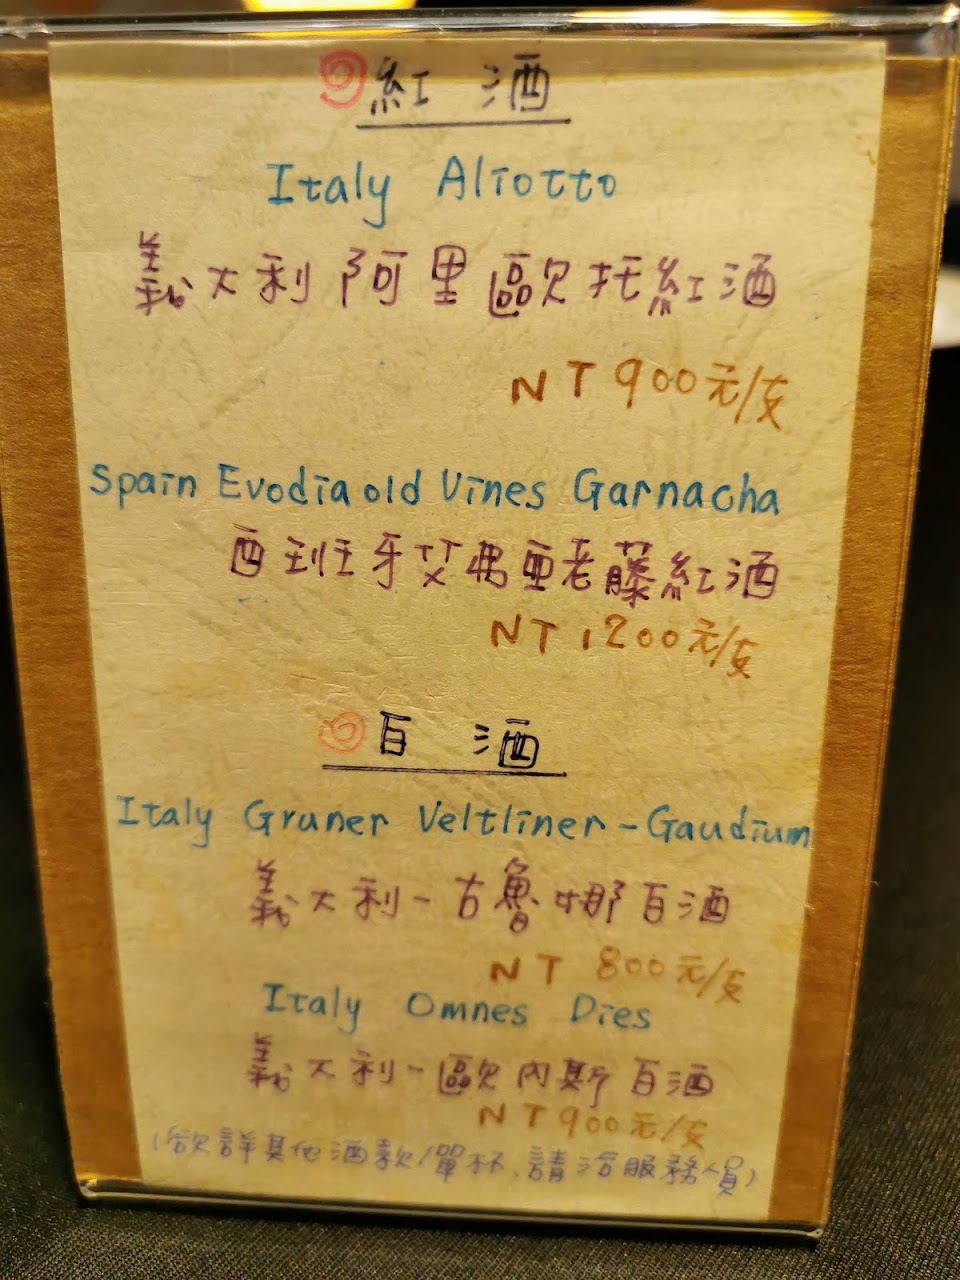 紅酒
Italy Aliotto
義大利阿里歐托紅酒
NT 900元/支
Spain Evodia old Vines Garnacha
西班牙艾弗亜老藤紅酒
NT 1200元/支
白酒
Italy Gruner Veltliner-Gaudium
義大利-古魯娜白酒
NT 800元/支
Italy Omnes Dies
義大利-歐內斯白酒
NT 900元/支
(欲詳其他酒款/單杯,請洽服務人員)